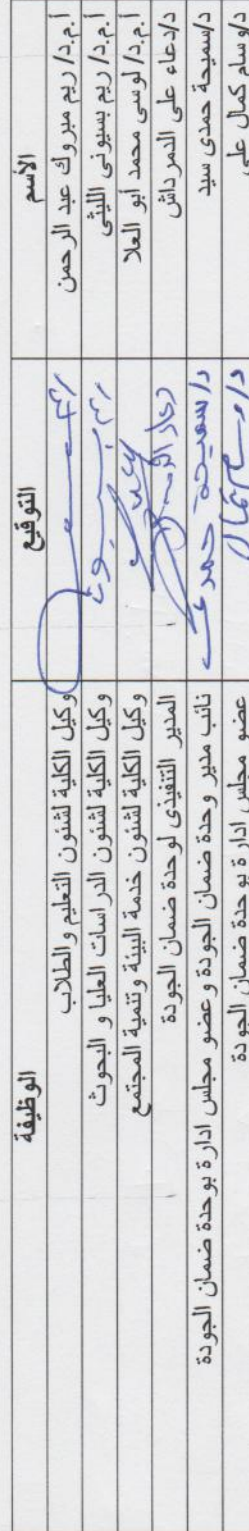 الأسم التوقيع الوظيفة
أ.م.د/ ريم مبروك عبد الرحمن وكيل الكلية لشئون التعليم و الطلاب
أ.م.د/ ريم بسيونى الليثى وكيل الكلية لشئون الدراسات العليا و البحوث
أ.م.د/ لوسى محمد أبو العلا وكيل الكلية لشئون خدمة البيئة وتنمية المجتمع
د/دعاء على الدمرداش المدير التنفيذى لوحدة ضمان الجودة
د/سميحة حمدى سيد د/ سميحة حمدى نائب مدير وحدة ضمان الجودة و عضو مجلس ادارة بوحدة ضمان الجودة
د/وسام كمال على عضو مجلس ادارة بوحدة ضمان الجودة